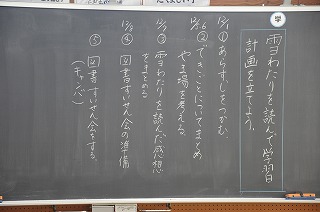 学
雪わたりを読んで学習
計画を立てよう。
12/1 ① あらすじをつかむ。
② できごとについてまとめ
やま場を考える。
12/7 ③ 雪わたりを読んだ感想
をまとめる。
12/8 ④ 図書すいせん会の準備
⑤ 図書すいせん会をする。